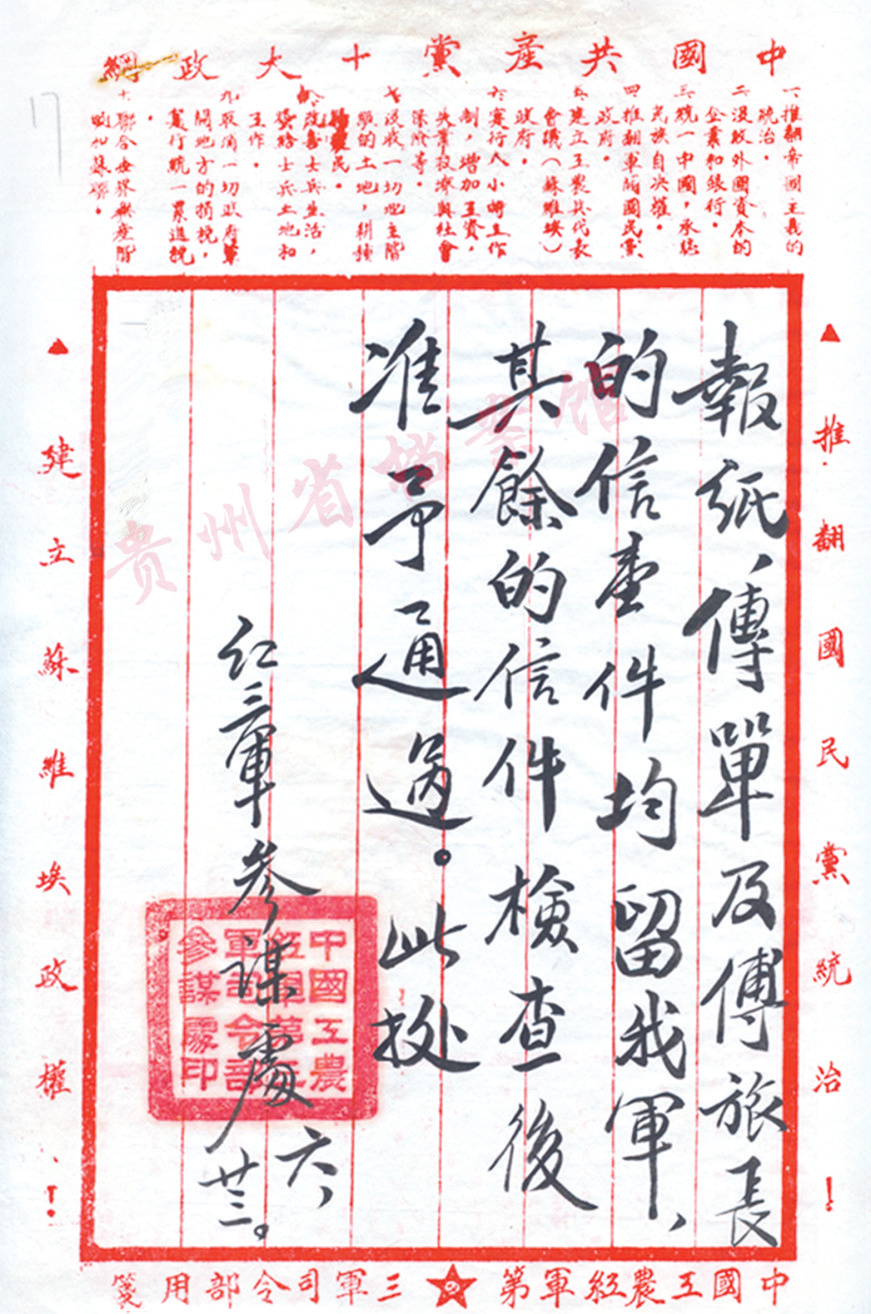 中國共產黨十大政綱
一、推翻帝國主義的
統治。
二、沒收外國資本的
企業和銀行。
三、統一中國，承認
民族自決權。
四、推翻軍閥國民黨
政府。
五、建立工農兵代表
會議（蘇維埃）
政府。
六、實行八小時工作
制，增加工資，
失業救濟與社會
保險等。
七、沒收一切地主階
級的土地，耕種
歸農民。
八、改善士兵生活，
發給士兵土地和
工作。
九、取消一切政府軍
閥地方的捐稅，
實行統一累進稅
。
十、聯合世界無產階
級和蘇聯。
17
▲推翻國民黨統治！
報紙、傳單及傅旅長
的信壹件均留我軍、
其餘的信件檢查後
准予通過。此拠
紅三軍參謀處
六、廿三。
中國工農
紅軍第三
軍司令部
參謀處印
▲建立蘇維埃政權！
中國工農紅軍第★三軍司令部用箋
贵州省档案馆